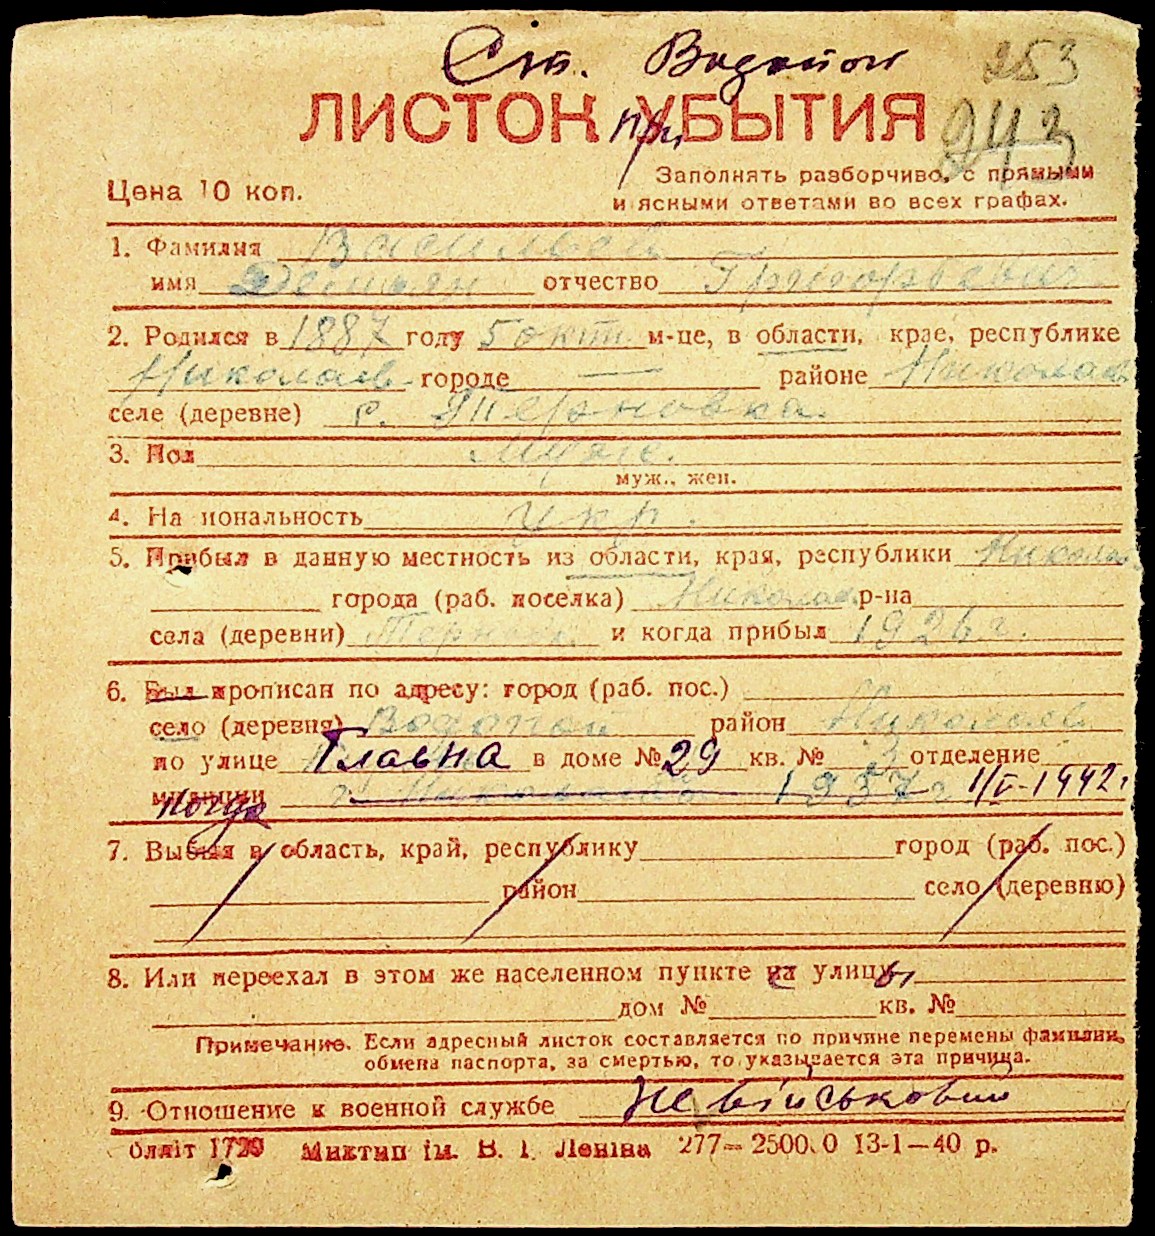 Ст. Водопой 253
ЛИСТОК УБЫТИЯ 243
при
Цена 10 коп. Заполнять разборчиво, с прямыми
и ясными ответами во всех графах.
1. Фамилия Васильев
имя Демьян отчество Григорьевич
2. Родился в 1887 году 5 окт. м-це, в области, крае, республике
Николаев городе — районе Николаев
селе (деревне) с. Терновка
3. Пол муж.
муж., жен.
4. На иональность укр.
5. Прибыл в данную местность из области, края, республики Никола
города (раб. поселка) Николаев р-на
села (деревни) Терновка и когда прибыл 1926 г.
6. Был прописан по адресу: город (раб. пос.)
село (деревня) Водопой район Николаев
по улице Главна в доме № 29 кв. № отделение
милиции 1937 г 1/V-1942 г
когда
7. Выбыл в область, край, республику город (раб. пос.)
район село (деревню)
8. Или переехал в этом же населенном пункте на улицу
дом № кв. №
Примечание. Если адресный листок составляется по причине перемены фамилии,
обмена паспорта, за смертью, то указывается эта причина.
9. Отношение к военной службе Не військовий
блліт 1729 Миктип ім. В. І. Леніна 277—2500.0 13-1—40 р.